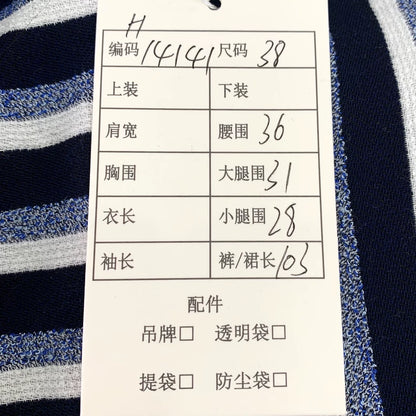 H
编码 14141 尺码 38
上装 下装
肩宽 腰围 36
胸围 大腿围 31
衣长 小腿围 28
袖长 裤/裙长 103
配件
吊牌□ 透明袋□
提袋□ 防尘袋□